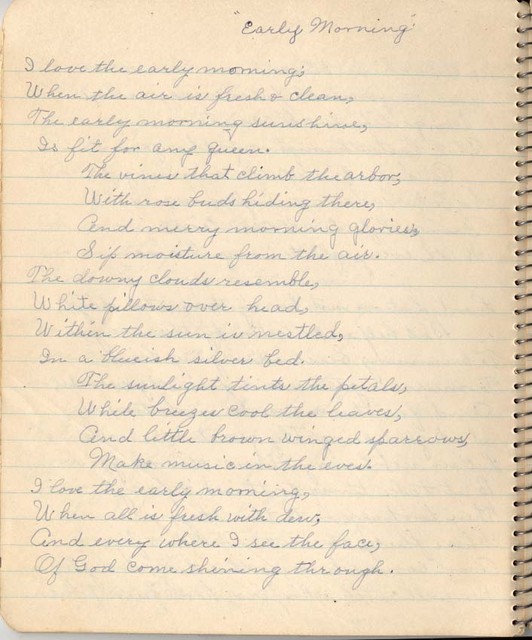 "Early Morning"
I love the early morning;
When the air is fresh & clean,
The early morning sunshine,
Is fit for any queen.
The vines that climb the arbor,
With rose buds hiding there,
And merry morning glories,
Sip moisture from the air.
The downy clouds resemble,
White pillows over head,
Within the sun is nestled,
In a blueish silver bed.
The sunlight tints the petals,
While breezes cool the leaves,
And little brown winged sparrows,
Make music in the eves.
I love the early morning,
When all is fresh with dew,
And every where I see the face,
Of God come shining through.